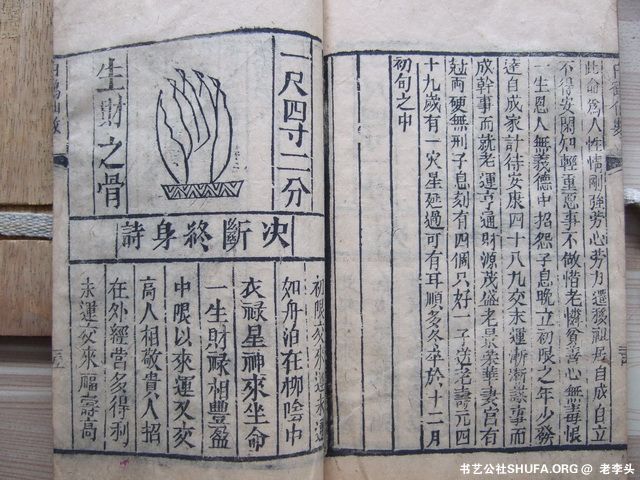 此命為人性情剛強劳心劳力還移祖居自成自立
不得安閑知輕重惡事不做惜老憐貧善心無毒恨
一生恩人無義德中招怨子息晚立初限之年少發
達自成家計待安康四十八九交末運漸漸謀事而
成幹事而就老運亨通財源茂盛老景荣華妻宮有
尅両硬無刑子息刻有四個只好一子送老壽元四
十九歲有一災星延過可有耳順多冬卒於十二月
初旬之中
一尺四寸二分
生財之骨
決斷終身詩
初限交來運未通
如舟泊在柳陰中
衣禄星神來坐命
一生財禄相豐盈
中限以來運又交
高人相敬貴人招
在外經營多得利
末運交來福壽高
书艺公社SHUFA.ORG @ 老李头